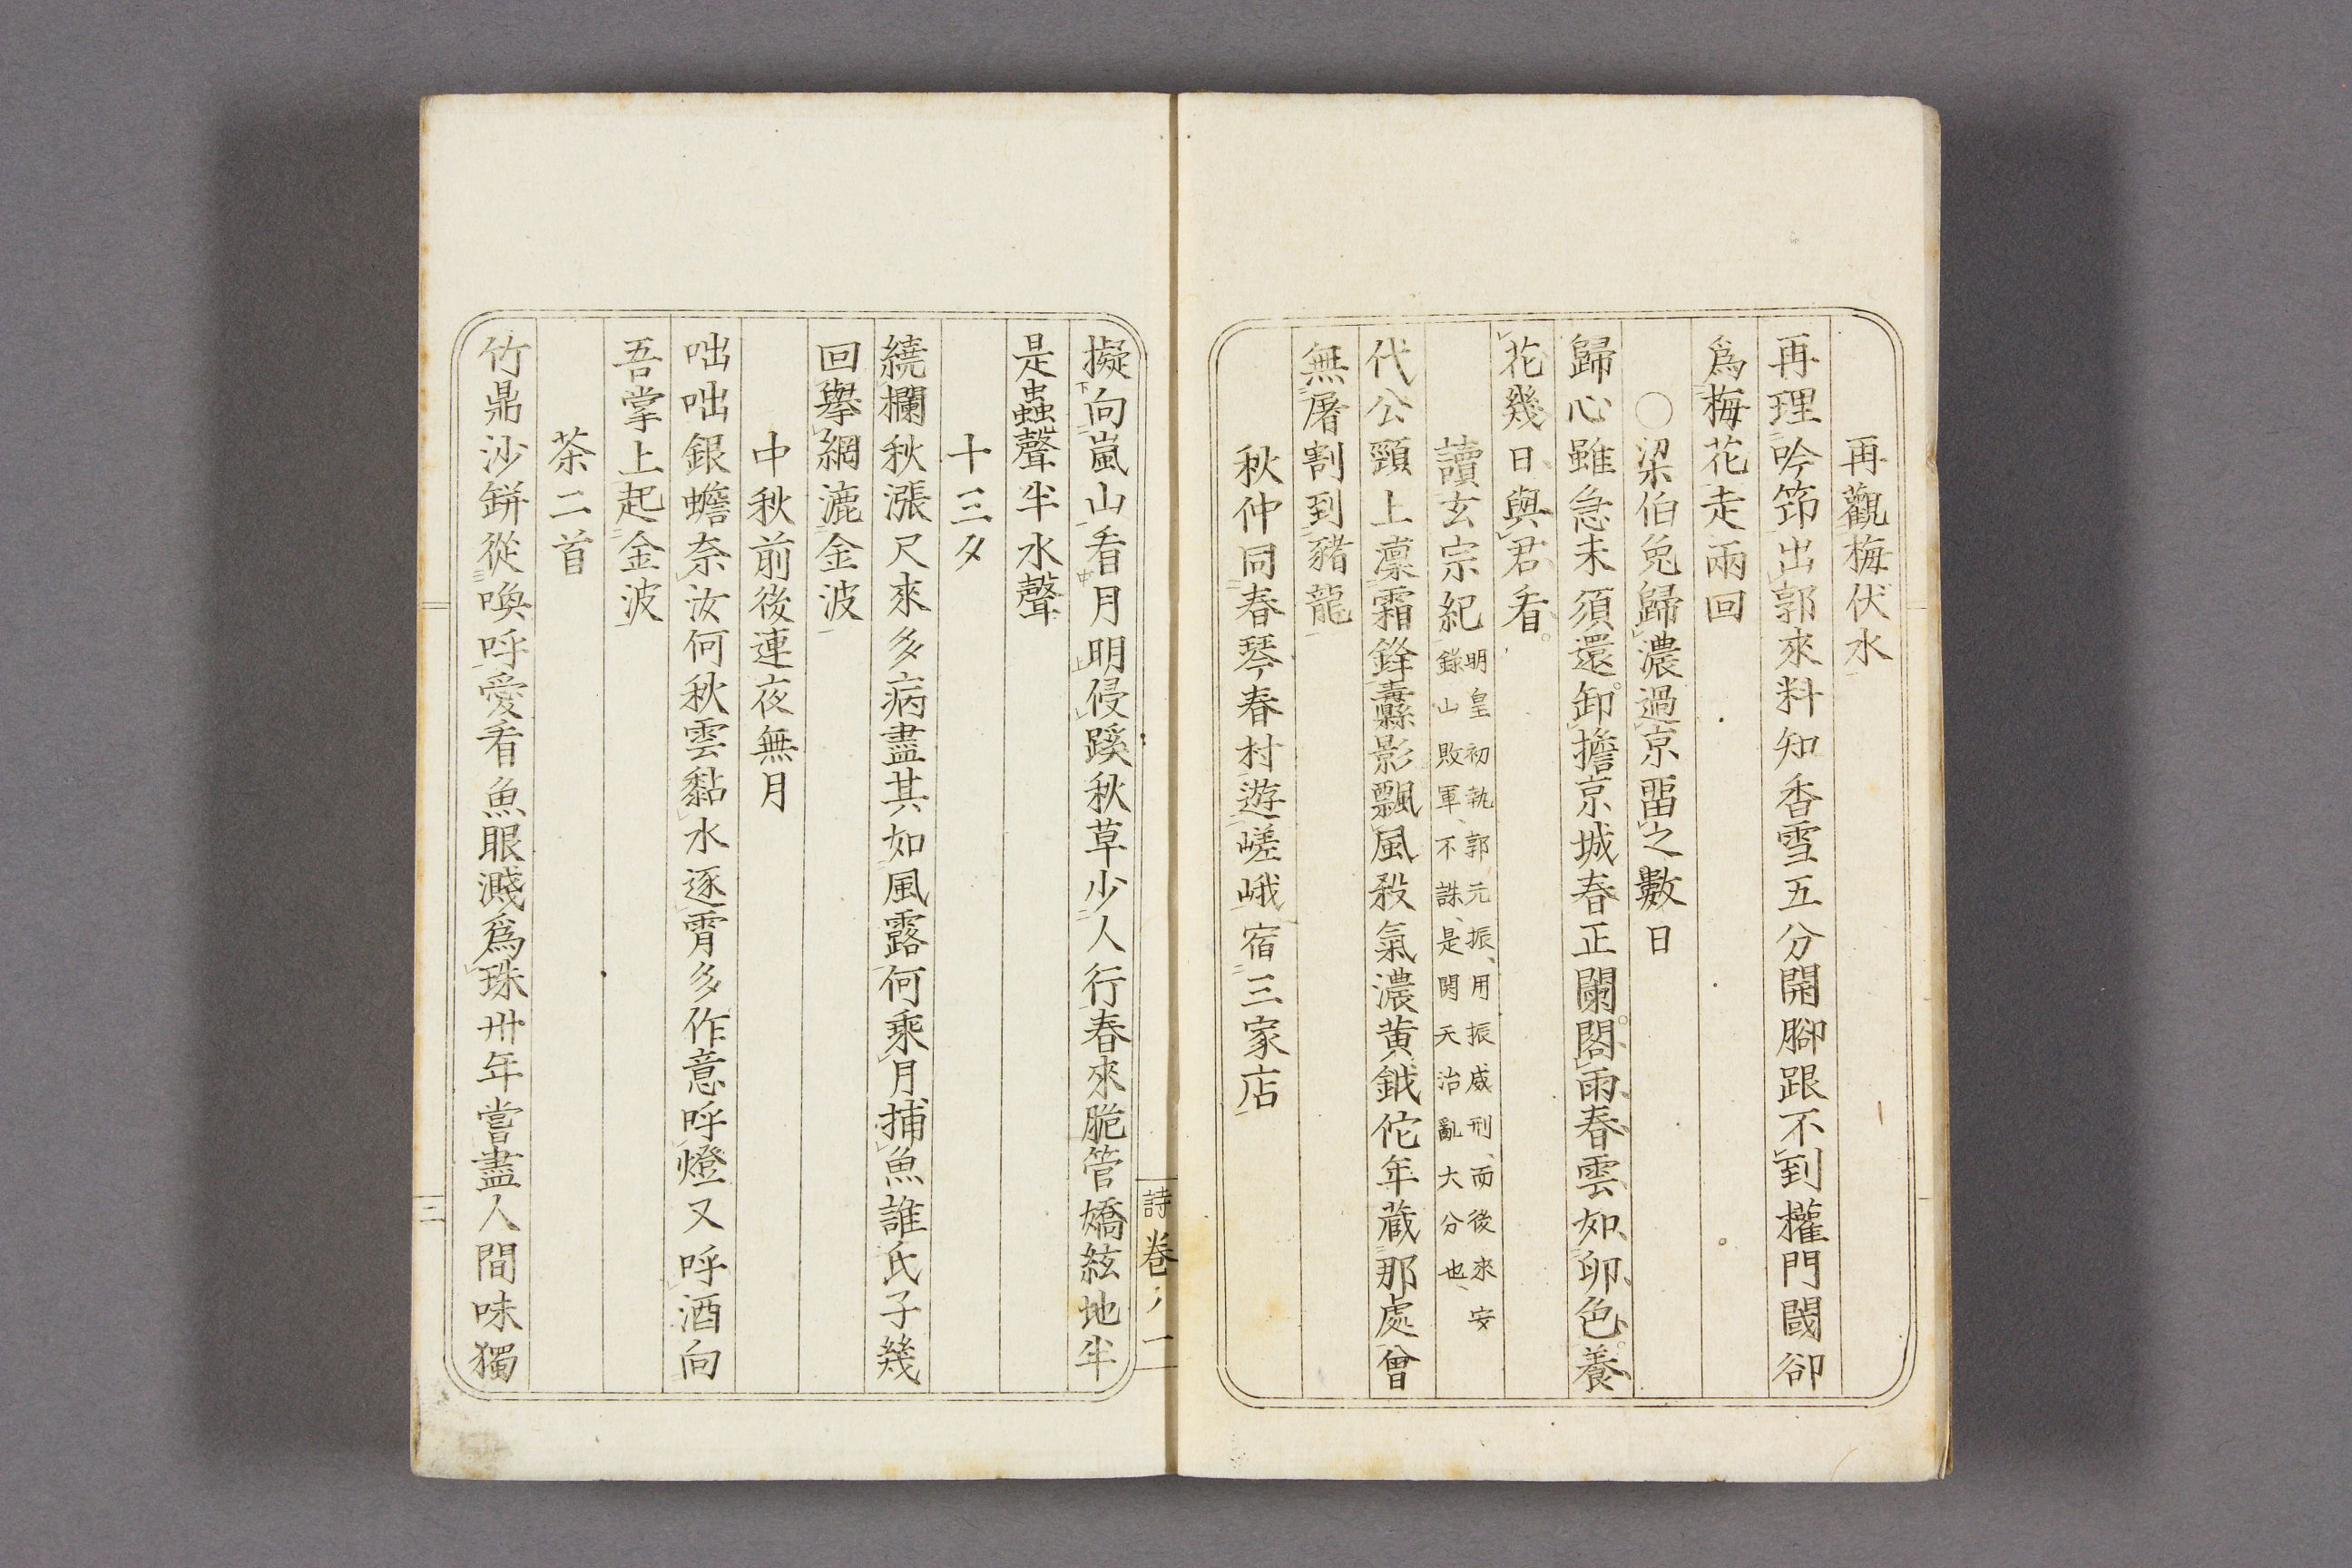 再觀梅伏水
再理吟笻出郭來料知香雪五分開腳跟不到權門閾卻
爲梅花走兩回
〇梁伯兎歸濃過京畱之數日
歸心雖急未須還卸擔京城春正闌閣雨春雲如卵色養
花幾日與君看
讀玄宗紀明皇初執郭元振用振威刑而後來安
錄山敗軍不誅是開天治亂大分也
代公頸上凛霜鋒纛影飄風殺氣濃黄鉞佗年蔵那處曾
無屠割到豬龍
秋仲同春琴春村遊嵯峨宿三家店
擬向嵐山看月明侵蹊秋草少人行春來脆管嬌絃地半
是蟲聲半水聲
十三夕
繞欄秋漲尺來多病盡其如風露何乘月捕魚誰氏子幾
回擧網漉金波
中秋前後連夜無月
咄咄銀蟾奈汝何秋雲黏水逐霄多作意呼燈又呼酒向
吾掌上起金波
茶二首
竹鼎沙缾從喚呼愛看魚眼濺爲珠卅年嘗盡人間味獨
詩卷ノ一
三